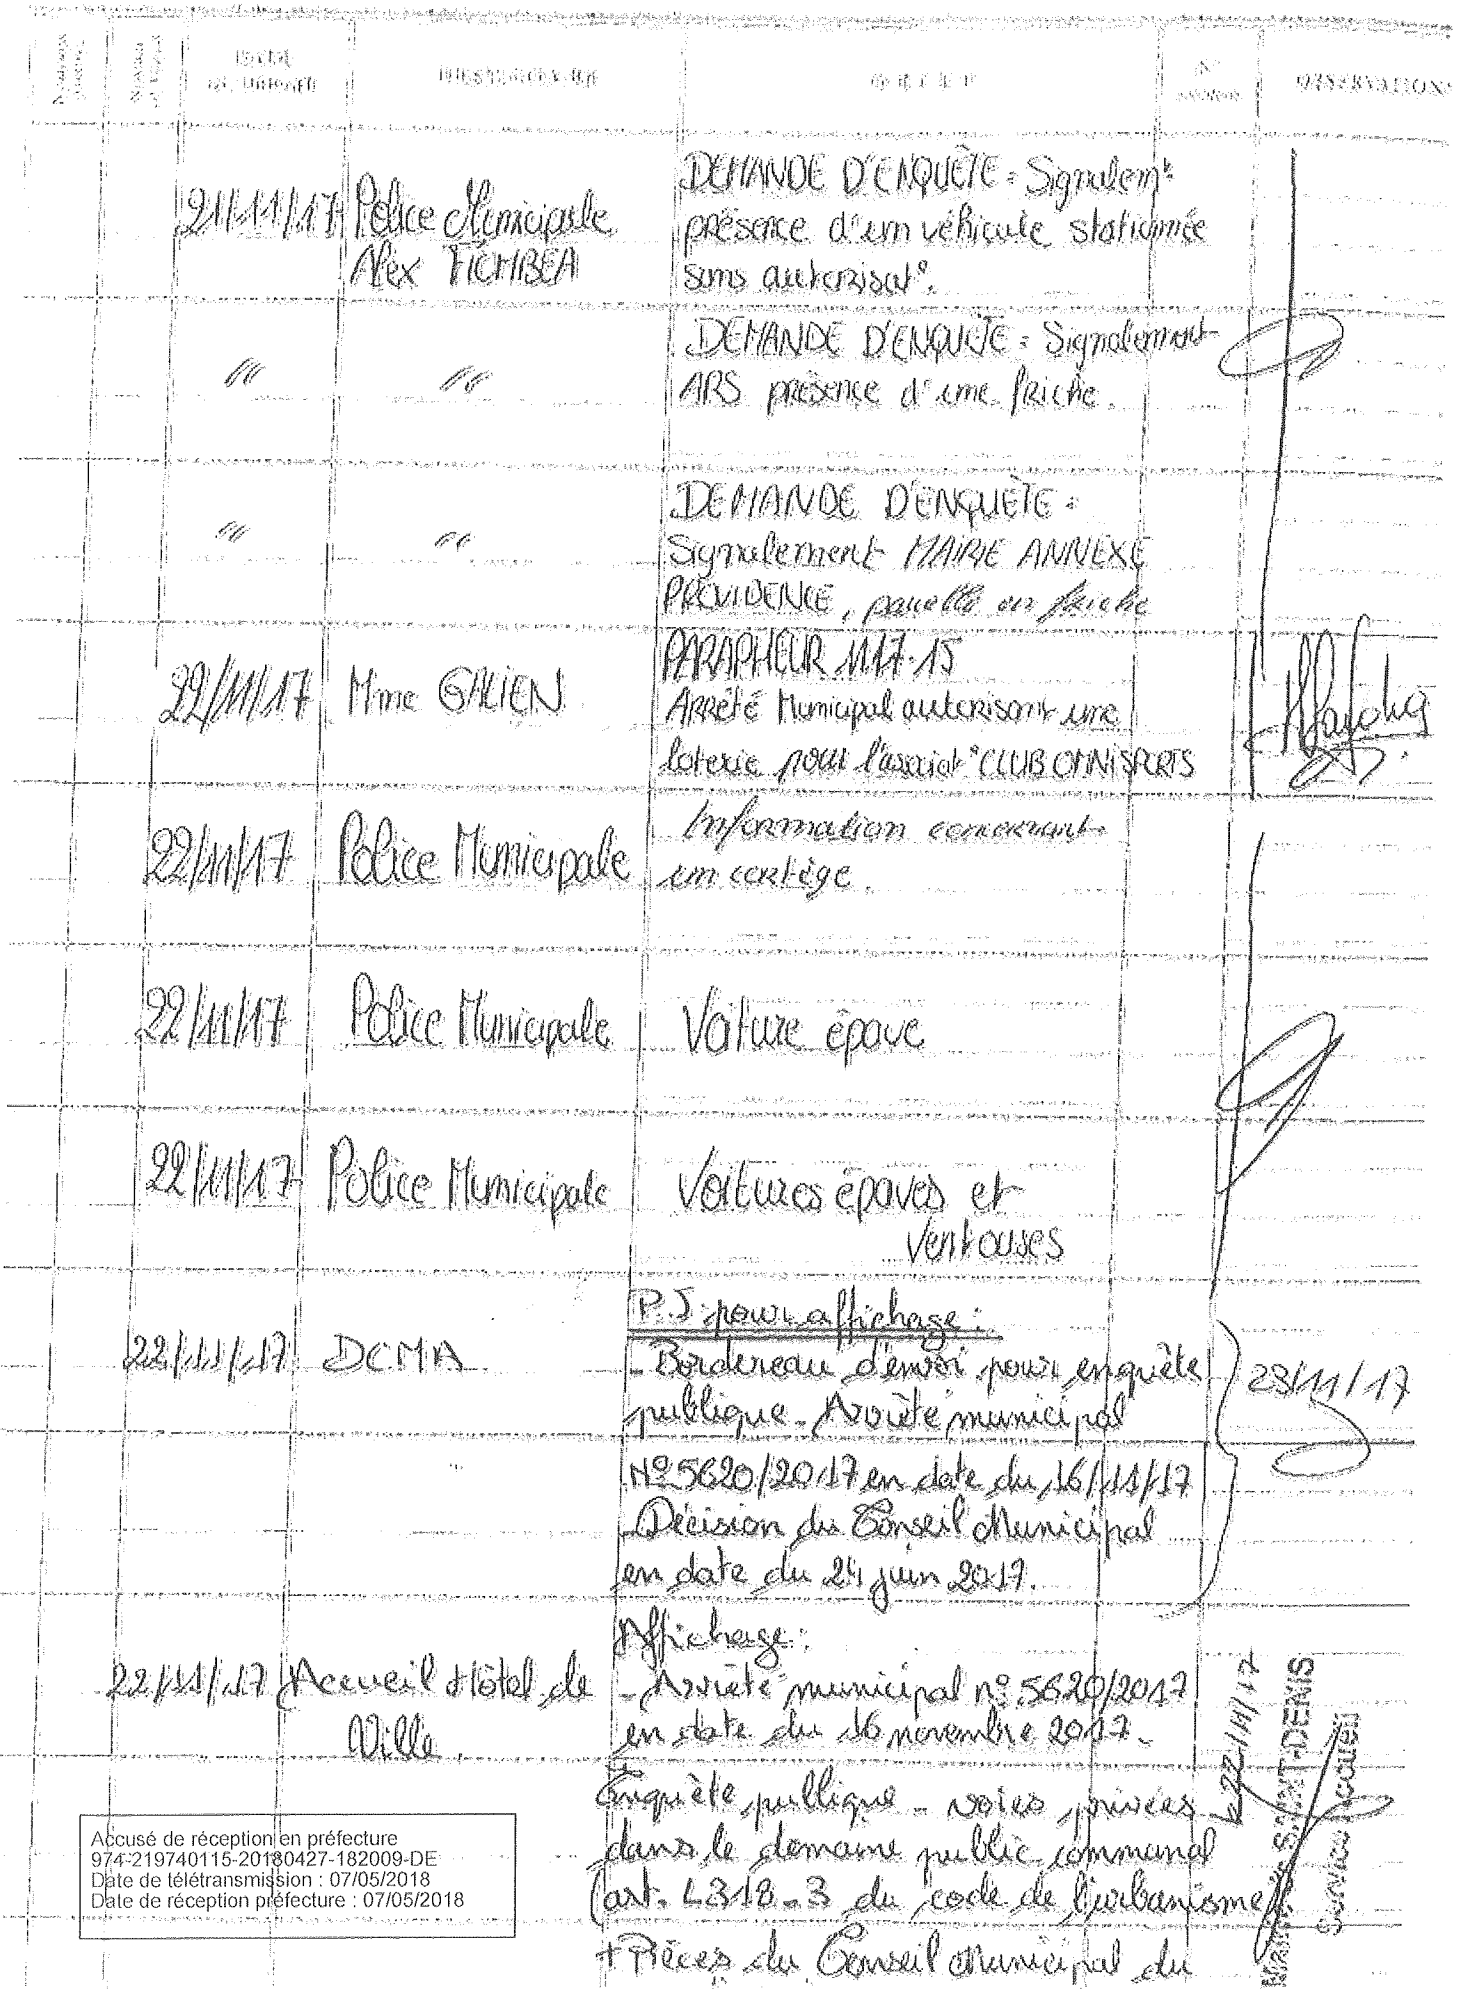 DATE
DESTINATAIRE
OBJET
N°
OBSERVATIONS
21/11/17 Police Municipale
Alex
DEMANDE D'ENQUÊTE = Signalemt
présence d'un véhicule stationnée
sans autorisat°.
" "
DEMANDE D'ENQUÊTE = Signalement
ARS présence d'une friche.
" "
DEMANDE D'ENQUÊTE =
Signalement MAIRIE ANNEXE
PROVIDENCE, parcelle en friche
22/11/17 Mme GALIEN
PARAPHEUR 1117-15
Arrêté Municipal autorisant une
loterie pour l'associat° CLUB OMNISPORTS
22/11/17 Police Municipale
Information concernant
un cortège.
22/11/17 Police Municipale Voiture épave
22/11/17 Police Municipale Voitures épaves et
Ventouses
22/11/17 DCMA
P.J pour affichage :
- Bordereau d'envoi pour enquête
publique - Arrêté municipal
N° 5620/2017 en date du 16/11/17
- Décision du Conseil Municipal
en date du 24 juin 2017.
23/11/17
22/11/17 Accueil Hôtel de
Ville
Affichage :
- Arrêté municipal n° 5620/2017
en date du 16 novembre 2017 -
Enquête publique - voies privées
dans le domaine public communal
(art. L318-3 du code de l'urbanisme)
+ Pièces du Conseil Municipal du
22/11/17
Mairie de SAINT-DENIS
Service Accueil
Accusé de réception en préfecture
974-219740115-20180427-182009-DE
Date de télétransmission : 07/05/2018
Date de réception préfecture : 07/05/2018